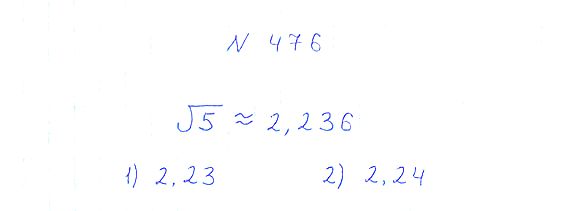 N 476
√5 ≈ 2,236
1) 2,23 2) 2,24